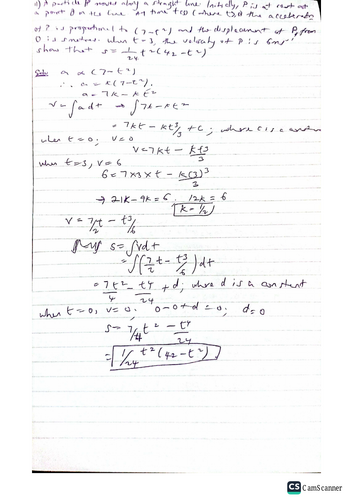 a) A particle P moves along a straight line Initially, P is at rest at
a point O on the line. At time t (where t≥0) the acceleration
of P is proportional to (7-t²) and the displacement of P from
O is s metres. When t=3, the velocity of P is 6ms⁻¹
show that s = 1/24 t²(42-t²)
Soln: a ∝ (7-t²)
∴ a = k(7-t²).
a = 7k - kt²
v = ∫adt → ∫7k - kt²
= 7kt - kt³/3 + c; where c is a constant
when t=0; v=0
v = 7kt - kt³/3
when t=3, v=6
6 = 7x3xk - k(3)³/3
→ 21k - 9k = 6. 12k = 6
k = 1/2
v = 7/2 t - t³/6
s = ∫vdt
= ∫(7/2 t - t³/6)dt
= 7t²/4 - t⁴/24 + d; where d is a constant
when t=0, v=0. 0-0+d=0; d=0
s = 7/4 t² - t⁴/24
= 1/24 t²(42-t²)
CS CamScanner